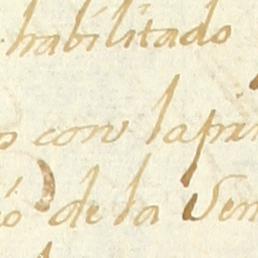 habilitado
con la pri
de la Ven